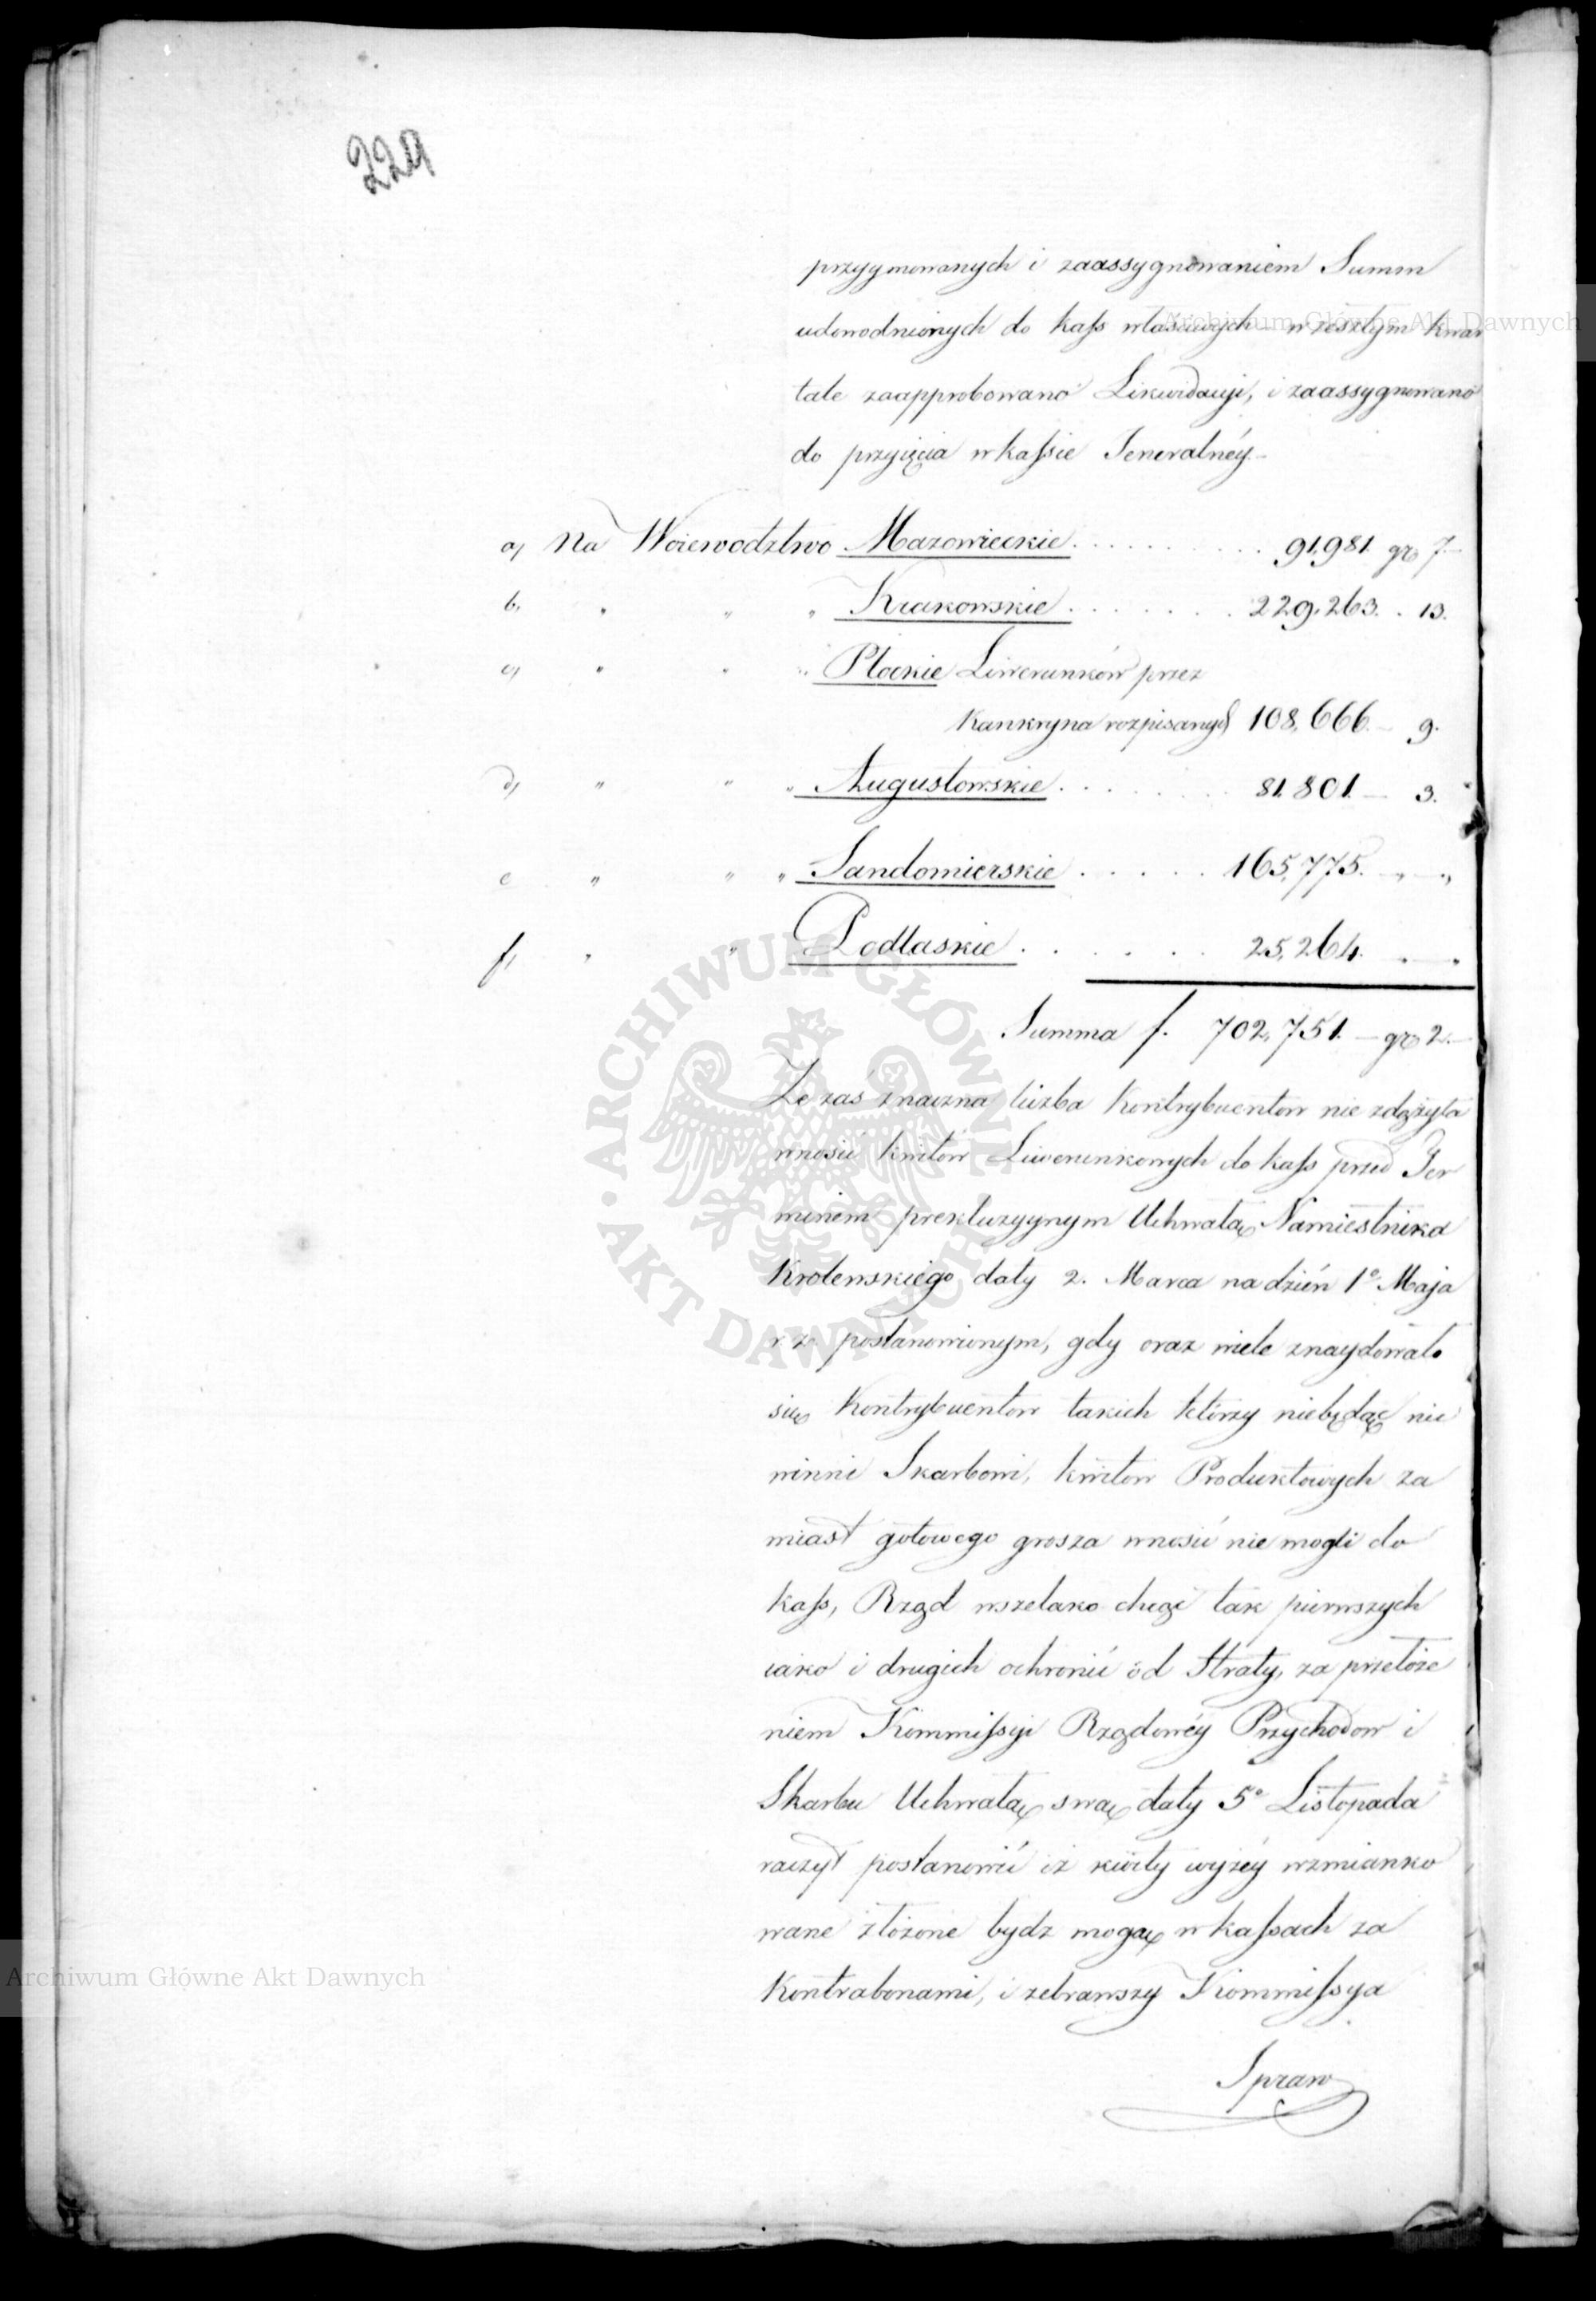 229
przyymowanych i zaassygnowaniem Summ
udowodnionych do kass właściwych w zeszłym kwar
tale zaapprobowano Likwidacyi, i zaassygnowano
do przyięcia w kassie Jeneralnéy.–
a, Na Woiewodztwo Mazowieckie . . . . . . . . . . 91,981. gr. 7.–
b, " " " Krakowskie . . . . . . . 229,263. . 13.
c, " " " Płockie Liwerunków przez
Kankryna rozpisanych 108,666. – 9.
d, " " " Augustowskie . . . . . . . 81,801. – 3.
e " " " Sandomierskie . . . . . 165,775. " – "
f, " " Podlaskie . . . . . . 25,264. " – "
Summa f. 702,751. – gr. 2.–
Ze zaś znaczna liczba Kontrybuentow nie zdążyła
wnosić kwitów Liwerunkowych do kass przed Ter
minem prekluzyynym Uchwałą Namiestnika
Krolewskiego daty 2. Marca na dzień 1º Maja
r. z. postanowionym, gdy oraz wiele znaydowało
się Kontrybuentow takich którzy niebędąc nic
winni Skarbowi, kwitow Produktowych za
miast gotowego grosza wnosić nie mogli do
kass, Rząd wszelako chcąc tak pierwszych
iako i drugich ochronić od straty, za przełoże
niem Kommissyi Rządowéy Przychodow i
Skarbu Uchwałą swą daty 5º Listopada
raczył postanowić iż kwity wyżéy wzmianko
wane złożone bydz mogą w kassach za
Kontrabonami, i zebrawszy Kommissya
Spraw
Archiwum Główne Akt Dawnych
Archiwum Główne Akt Dawnych
ARCHIWUM GŁÓWNE AKT DAWNYCH